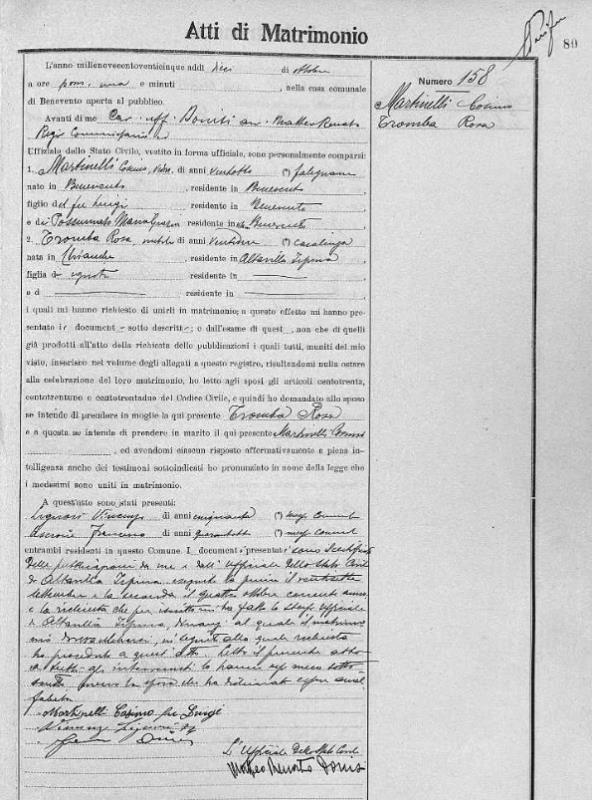 Atti di Matrimonio
80
L'anno millenovecentoventicinque addì dieci di ottobre
a ore pom. una e minuti , nella casa comunale
di Benevento aperta al pubblico.
Avanti di me Cav. uff. Matteo Renato
Regio Commissario
Uffiziale dello Stato Civile, vestito in forma ufficiale, sono personalmente comparsi:
1. Martinelli Cosimo, di anni ventotto (*) falegname
nato in Benevento , residente in Benevento
figlio del fu Luigi residente in Benevento
e di Possumato residente in Benevento
2. Tromba Rosa nubile di anni (*) casalinga
nata in , residente in Altavilla Irpina
figlia d ignoti residente in
e d residente in
i quali mi hanno richiesto di unirli in matrimonio; a questo effetto mi hanno pre-
sentato i document sotto descritt ; e dall'esame di quest , non che di quelli
già prodotti all'atto della richiesta delle pubblicazioni i quali tutti, muniti del mio
visto, inserisco nel volume degli allegati a questo registro, risultandomi nulla ostare
alla celebrazione del loro matrimonio, ho letto agli sposi gli articoli centotrenta,
centotrentuno e centotrentadue del Codice Civile, e quindi ho domandato allo sposo
se intende di prendere in moglie la qui presente Tromba Rosa
e a questa se intende di prendere in marito il qui presente Martinelli Cosimo
, ed avendomi ciascuno risposto affermativamente a piena in-
telligenza anche dei testimoni sottoindicati ho pronunziato in nome della legge che
i medesimi sono uniti in matrimonio.
A quest'atto sono stati presenti:
Liguori Vincenzo di anni cinquanta (*) messo comunale
Francesco di anni quarantotto (*) messo comunale
entrambi residenti in questo Comune. I document presentati sono i certificati
delle pubblicazioni da me e dall'Uffiziale dello Stato Civile
di Altavilla Irpina eseguite la prima il ventisette
settembre e la seconda il quattro ottobre corrente anno,
e la richiesta che per iscritto mi ha fatto lo stesso Uffiziale
di Altavilla Irpina, innanzi al quale il matrimonio
in seguito alla quale richiesta
ho proceduto a quest'atto. Letto il presente atto
a tutti gli intervenuti lo hanno meco sotto-
scritto meno la sposa che ha dichiarato essere anal-
fabeta
Martinelli Cosimo fu Luigi
L'Ufficiale dello Stato Civile
Matteo Renato
Numero 158
Martinelli Cosimo
Tromba Rosa